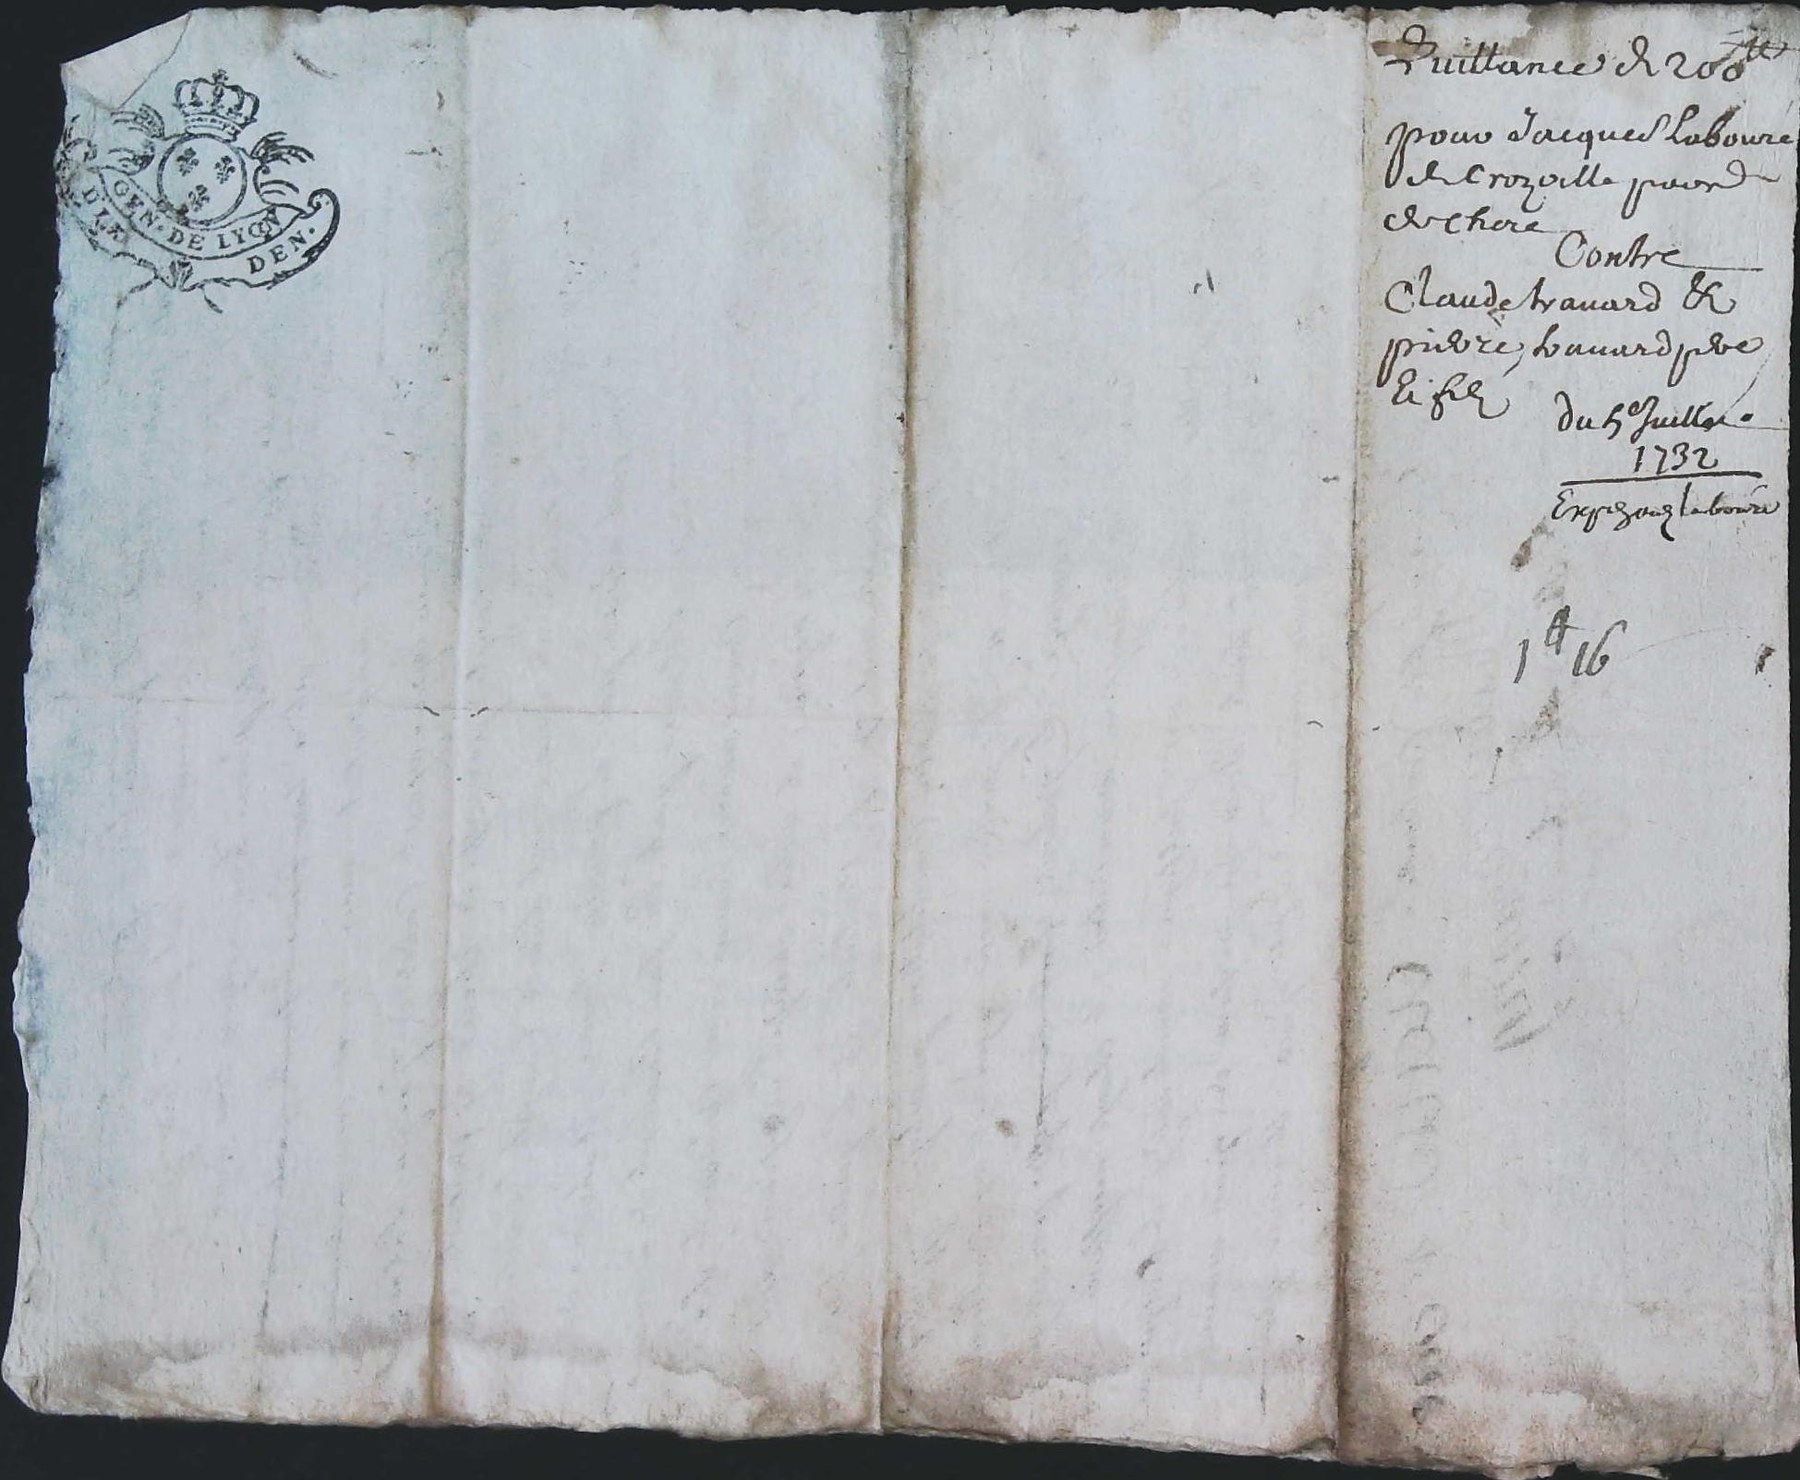 GEN. DE LYON
DEN.
Quittance de 200 ₶
pour Jacques Labouré
de Crozville paroid
de Chere
Contre
Claude travard &
pierre travard pere
et filz
du 5e Juillet
1732
Exp pour Labouré
1 ₶ 16